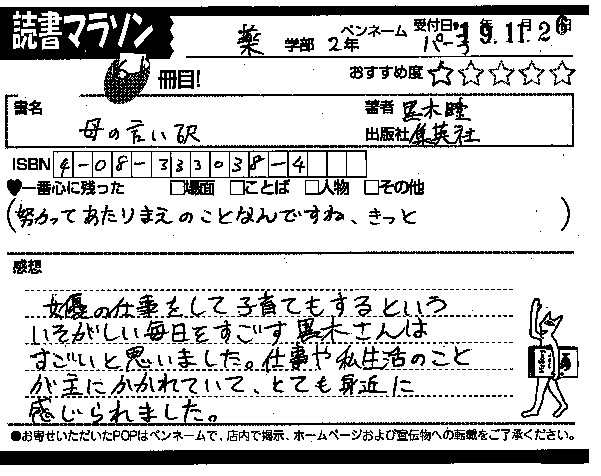 読書マラソン
薬 学部 2年 ペンネーム パーラ 受付日 19.11.26
冊目! おすすめ度 ☆☆☆☆☆
書名 母の言い訳
著者 黒木瞳
出版社 集英社
ISBN 4-08-333038-4
♥一番心に残った □場面 □ことば □人物 □その他
(努力ってあたりまえのことなんですね、きっと)
感想
女優の仕事をして子育てもするという
いそがしい毎日をすごす黒木さんは
すごいと思いました。仕事や私生活のこと
が主にかかれていて、とても身近に
感じられました。
●お寄せいただいたPOPはペンネームで、店内で掲示、ホームページおよび宣伝物への転載をご了承ください。